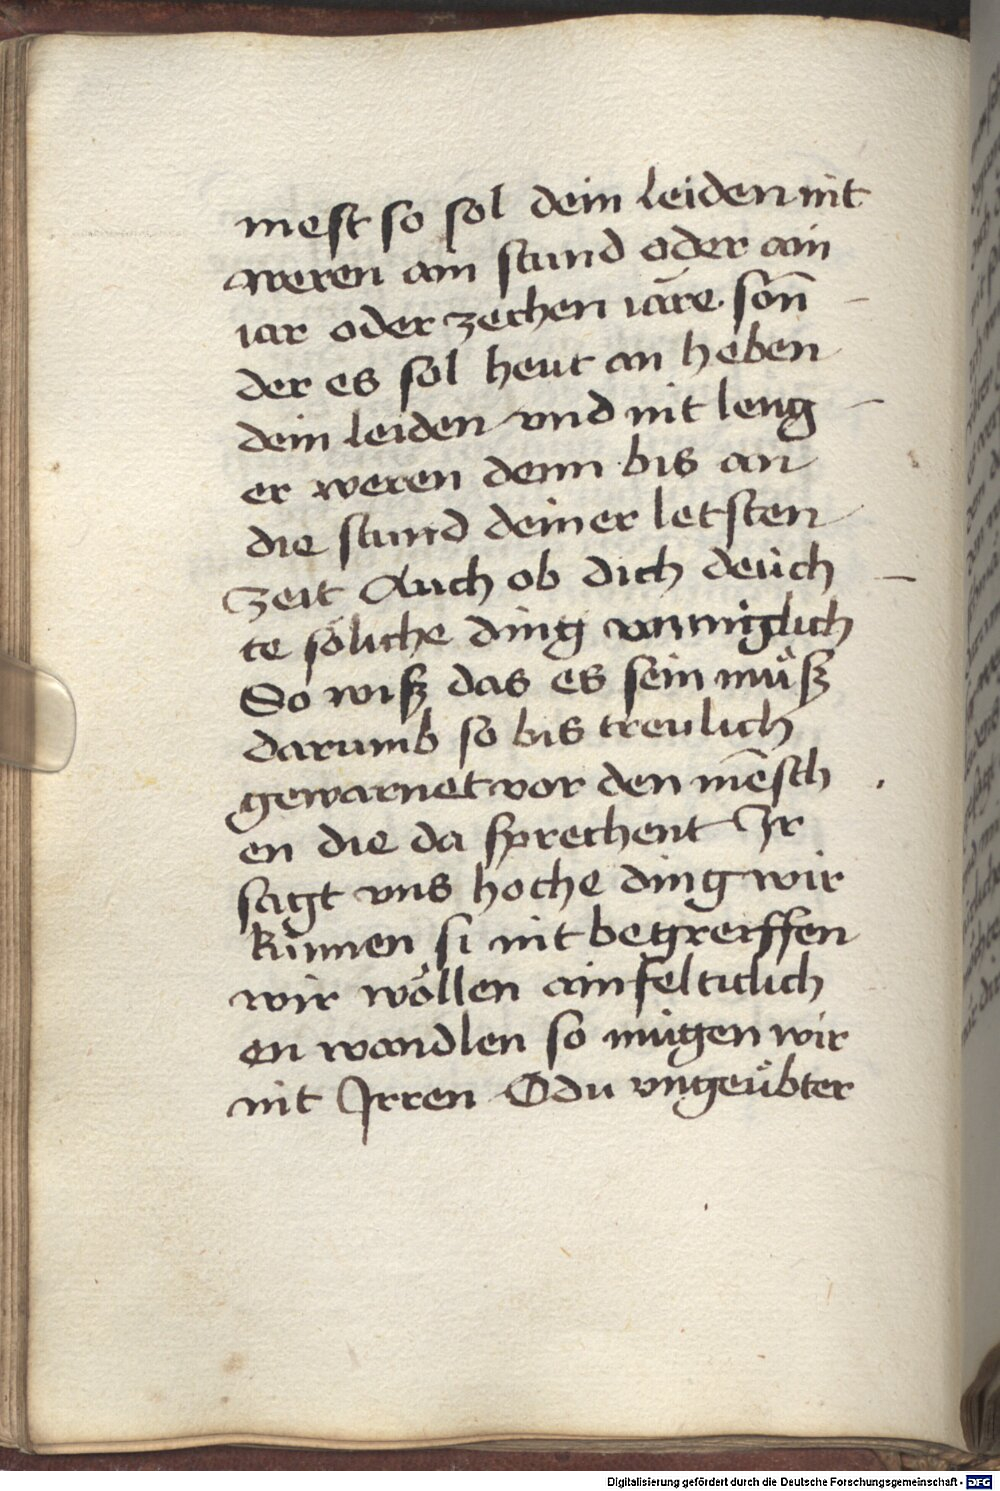 mest so sol dein leiden nit
weren ain stund oder ain
iar oder zechen iare. son̄
der es sol heut an heben
dein leiden vnd nit leng
er weren denn bis an
die stund deiner letsten
zeit Auch ob dich deuch
te söliche ding vnmiglich
So wisz das es sein muͦsz
darumb so bis treulich
gewarnet vor den mēsch
en die da sprechent Ir
sagt vns hoche ding wir
kinnen si nit begreiffen
wir woͤllen ainfelticlich
en wandlen so mugen wir
nit Irren O du vngeuͤbter
Digitalisierung gefördert durch die Deutsche Forschungsgemeinschaft - DFG